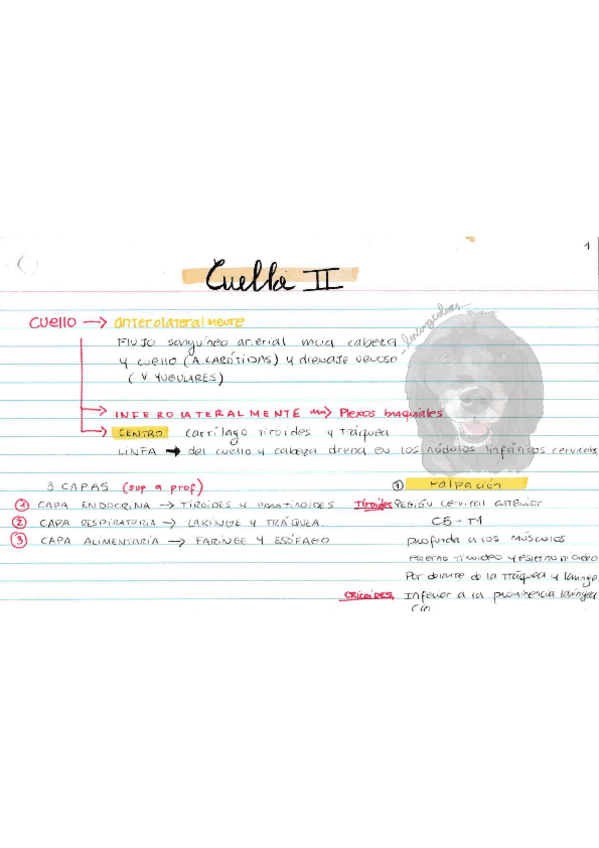 1
Cuello II
CUELLO → anterolateralmente
Flujo sanguíneo arterial hacia cabeza
y cuello (A. CARÓTIDAS) y drenaje venoso
(V YUGULARES)
INFEROLATERALMENTE → Plexos braquiales
CENTRO cartílago tiroides y tráquea
LINFA → del cuello y cabeza drena en los nódulos linfáticos cervicales
3 CAPAS (sup a prof)
① CAPA ENDOCRINA → TIROIDES Y PARATIROIDES
② CAPA RESPIRATORIA → LARINGE Y TRÁQUEA
③ CAPA ALIMENTARIA → FARINGE Y ESÓFAGO
① Palpación
Tiroides REGIÓN cervical anterior
C5 - T1
profunda a los músculos
esterno tiroideo y esternohioideo
Por delante de la tráquea y laringe
CRICOIDES Inferior a la prominencia laríngea